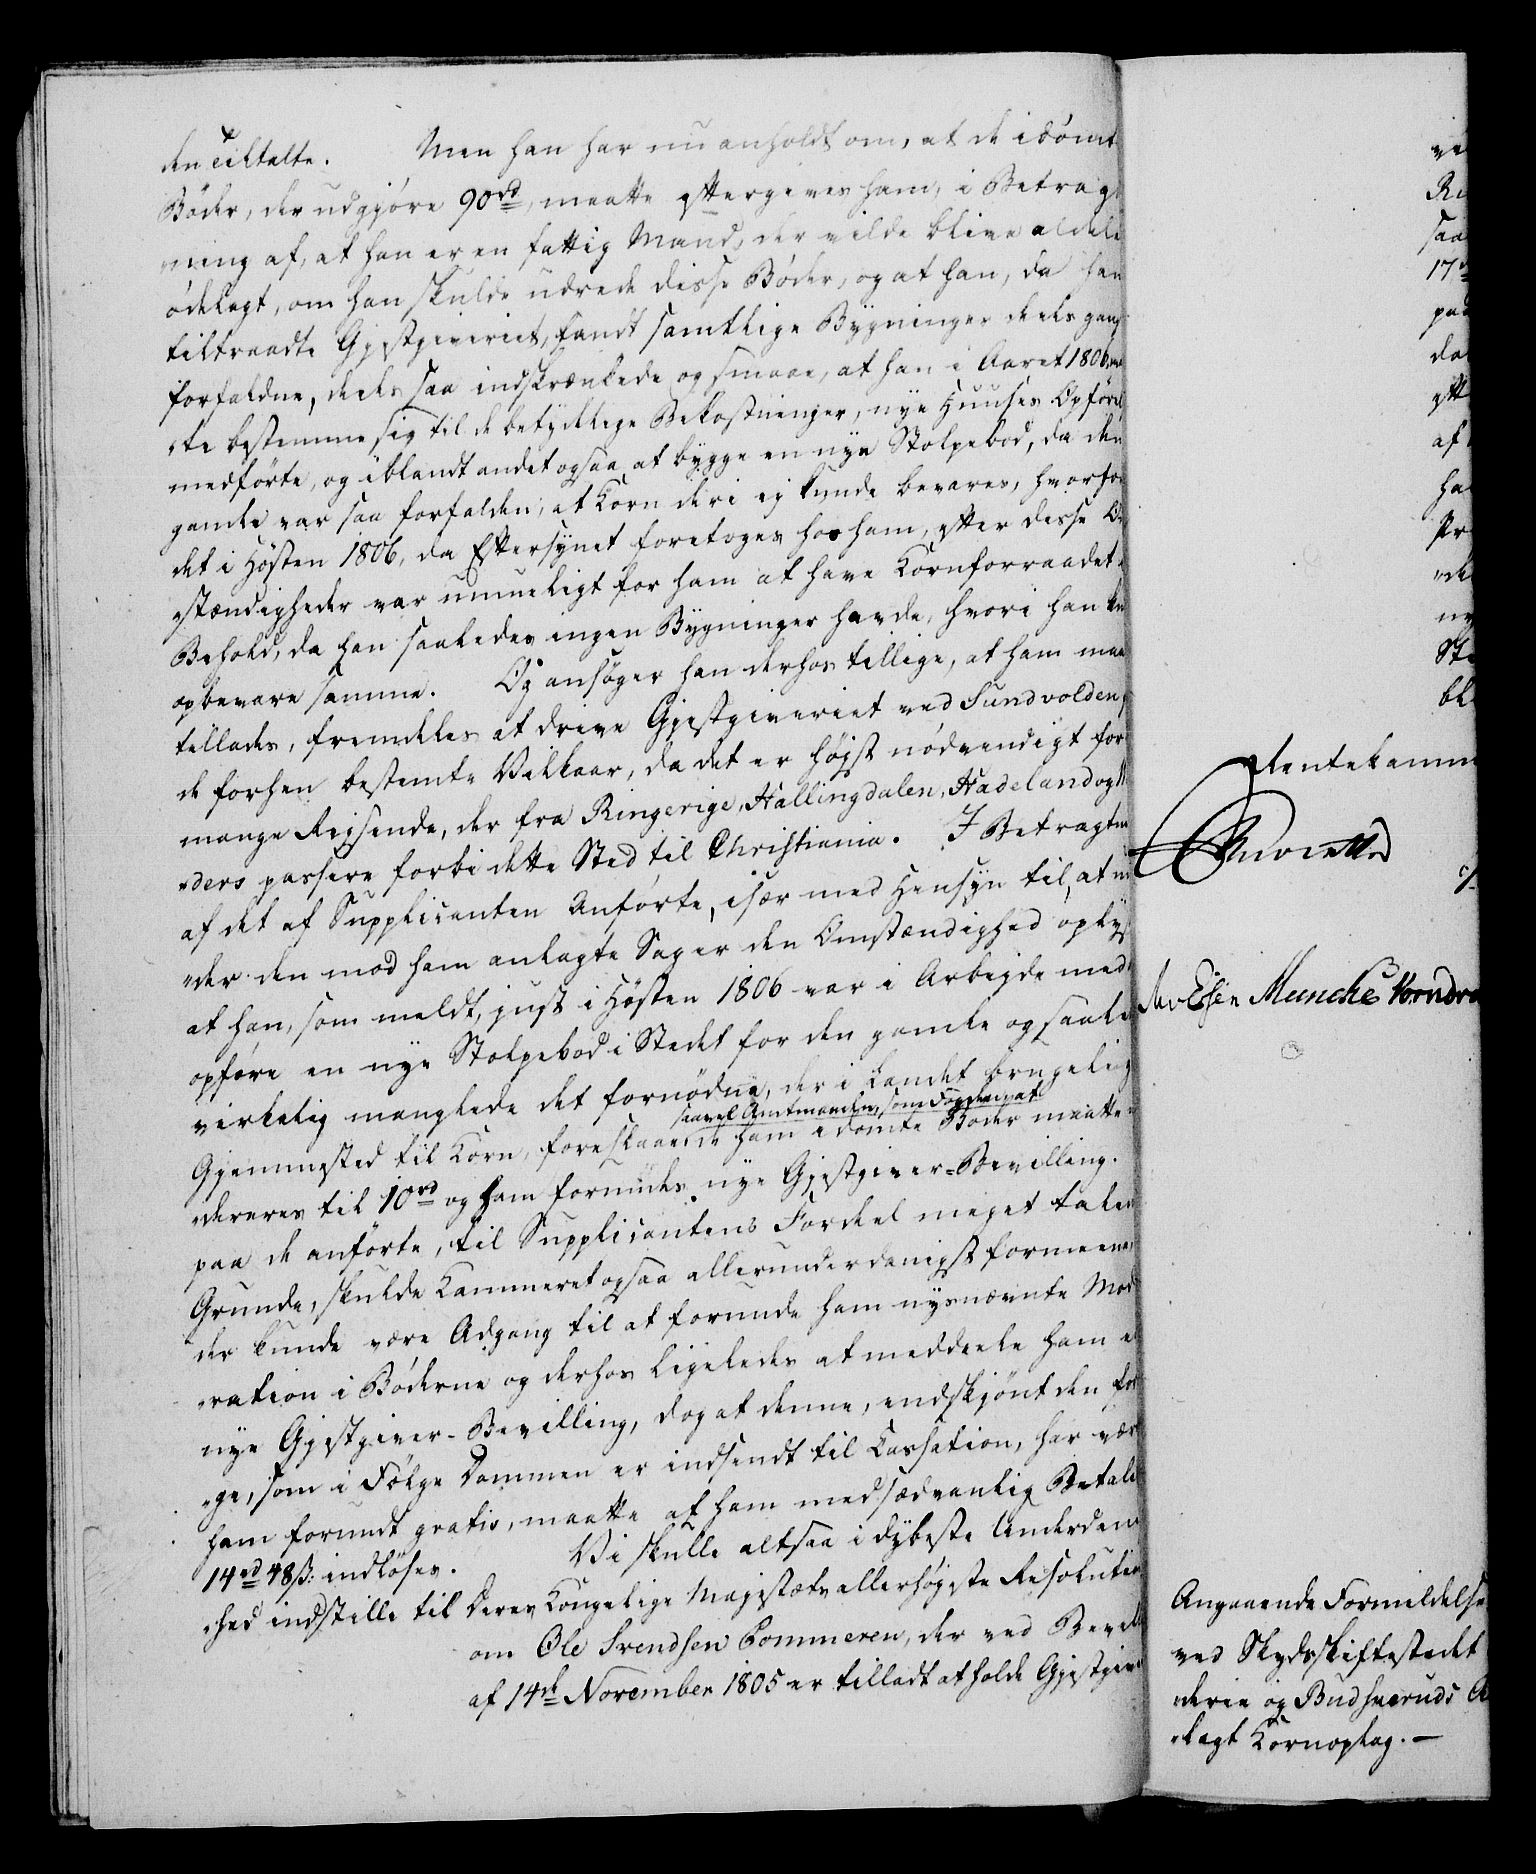 den tiltalte. Men han har nu anholdt om, at de idömt
Böder, der udgjöre 90rd, maatte eftergives ham, i Betragt
ning af, at han er en fattig Mand, der vilde blive aldele
ödelagt, om han skulde udrede disse Böder, og at han, da han
tiltraadte Gjestgiveriet, fandt samtlige Bygninger deels gans
forfaldne, deels saa indskrænkede og smaae, at han i Aaret 1806
"te bestemme sig til de betydelige Bekostninger, nye Huuses Opförel
medförte, og iblandt andet ogsaa at bygge en nye Stolpebod, da den
gamle var saa forfalden, at Korn deri ej kunde bevares, hvorfor
det i Hösten 1806, da Eftersynet foretoges hos ham, efter disse O
"stændigheder var umueligt for ham at have Kornforraadet
Behold, da han saaledes ingen Bygninger havde, hvori han kun
opbevare samme. Og ansöger han derhos tillige, at ham maa
tillades, fremdeles at drive Gjestgiveriet ved Sundvolden,
de forhen bestemte Vilkaar, da det er höjst nödvendigt for
mange Rejsende, der fra Ringerige, Hallingdalen, Hadeland og
"ders passere forbi dette Sted til Christiania. I Betragtni
af det af Supplicanten Anförte, især med Hensyn til, at u
"der den mod ham anlagte Sag er den Omstændighed oplys
at han, som meldt, just i Hösten 1806 var i Arbejde med
opföre en nye Stolpebod i Stedet for den gamle og saale
virkelig manglede det fornödne, der i Landet brugelig
saavel Amtmanden, som Fogden, at
Gjemmested til Korn, foreslaae de ham idömte Böder maatte
"dereres til 10rd og ham forundes nye Gjestgiver-Bevilling.
paa de anförte, til Supplicantens Fordeel meget talen
Grunde, skulde Kammeret ogsaa allerunderdanigst formeene,
der kunde være Adgang til at forunde ham nysnævnte Mod
"ration i Böderne og derhos ligeledes at meddeele ham e
nye Gjestgiver-Bevilling, dog at denne, endskjönt den for
"ge, som i Fölge Dommen er indsendt til Cassation, har vær
ham forundt gratis, maatte af ham med sædvanlig Betali
14rd 48ß: indlöses. Vi skulle altsaa i dybeste Underdan
"hed indstille til Deres Kongelige Majestæts allerhöjeste Resolution
om Ole Svendsen Pommeren, der ved Bevill
af 14de November 1805 er tilladt at holde Gjestgive
ve
saa
17de
paa
da
eft
af
ha
Pr
"de
ny
Ste
bl
Rentekamm
Munche Vorndra
Angaaende Formildelse
ved Skydsskiftestedet
derie og Budsкeruds A
"lagt Kornoplag. —